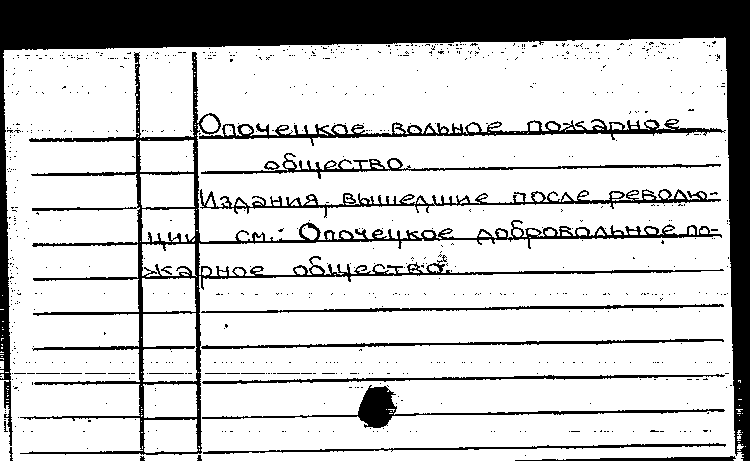 Опочецкое вольное пожарное
общество.
Издания, вышедшие после револю-
ции см.: Опочецкое добровольное по-
жарное общество.